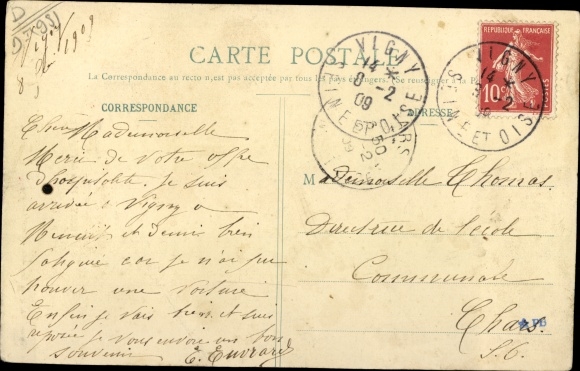 CARTE POSTALE
La Correspondance au recto n'est pas acceptée par tous les pays étrangers. (Se renseigner à la Poste)
CORRESPONDANCE
ADRESSE
Chère Mademoiselle
Merci de votre offre
d'hospitalité. Je suis
arrivée à Vigny à
minuit et demie bien
fatiguée car je n'ai pu
trouver une voiture
Enfin je vais bien et suis
reposée je vous envoie un bon
souvenir E. Euvrard
Mademoiselle Thomas
Directrice de l'école
Communale
Chars
S.O.
VIGNY
14 *
8 -2
09
SEINE ET OISE
CHARS
VIGNY
14 *
8 -2
SEINE ET OISE
REPUBLIQUE FRANÇAISE
10c
POSTES
PB
1909